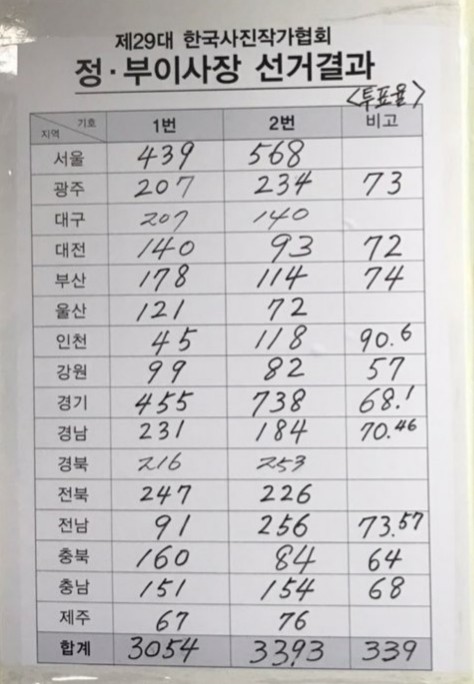 제29대 한국사진작가협회
정·부이사장 선거결과
<투표율>
지역 기호 1번 2번 비고
서울 439 568
광주 207 234 73
대구 207 140
대전 140 93 72
부산 178 114 74
울산 121 72
인천 45 118 90.6
강원 99 82 57
경기 455 738 68.1
경남 231 184 70.46
경북 216 253
전북 247 226
전남 91 256 73.57
충북 160 84 64
충남 151 154 68
제주 67 76
합계 3054 3393 339